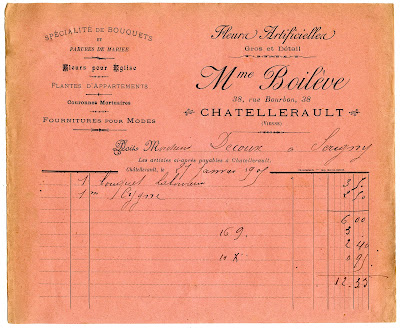 SPÉCIALITÉ DE BOUQUETS
ET
PARURES DE MARIÉE
Fleurs pour Eglise
PLANTES D'APPARTEMENTS
Couronnes Mortuaires
FOURNITURES POUR MODES
Fleurs Artificielles
Gros et Détail
Mme Boilève
38, rue Bourbon, 38
CHATELLERAULT
(VIENNE)
Doit Decoux à
Les articles ci-après payables à Châtellerault.
Châtellerault, le Janvier 19
1 bouquet 3 50
1 2 50
6 00
16 9 3
2 40
10 0 95
12 35